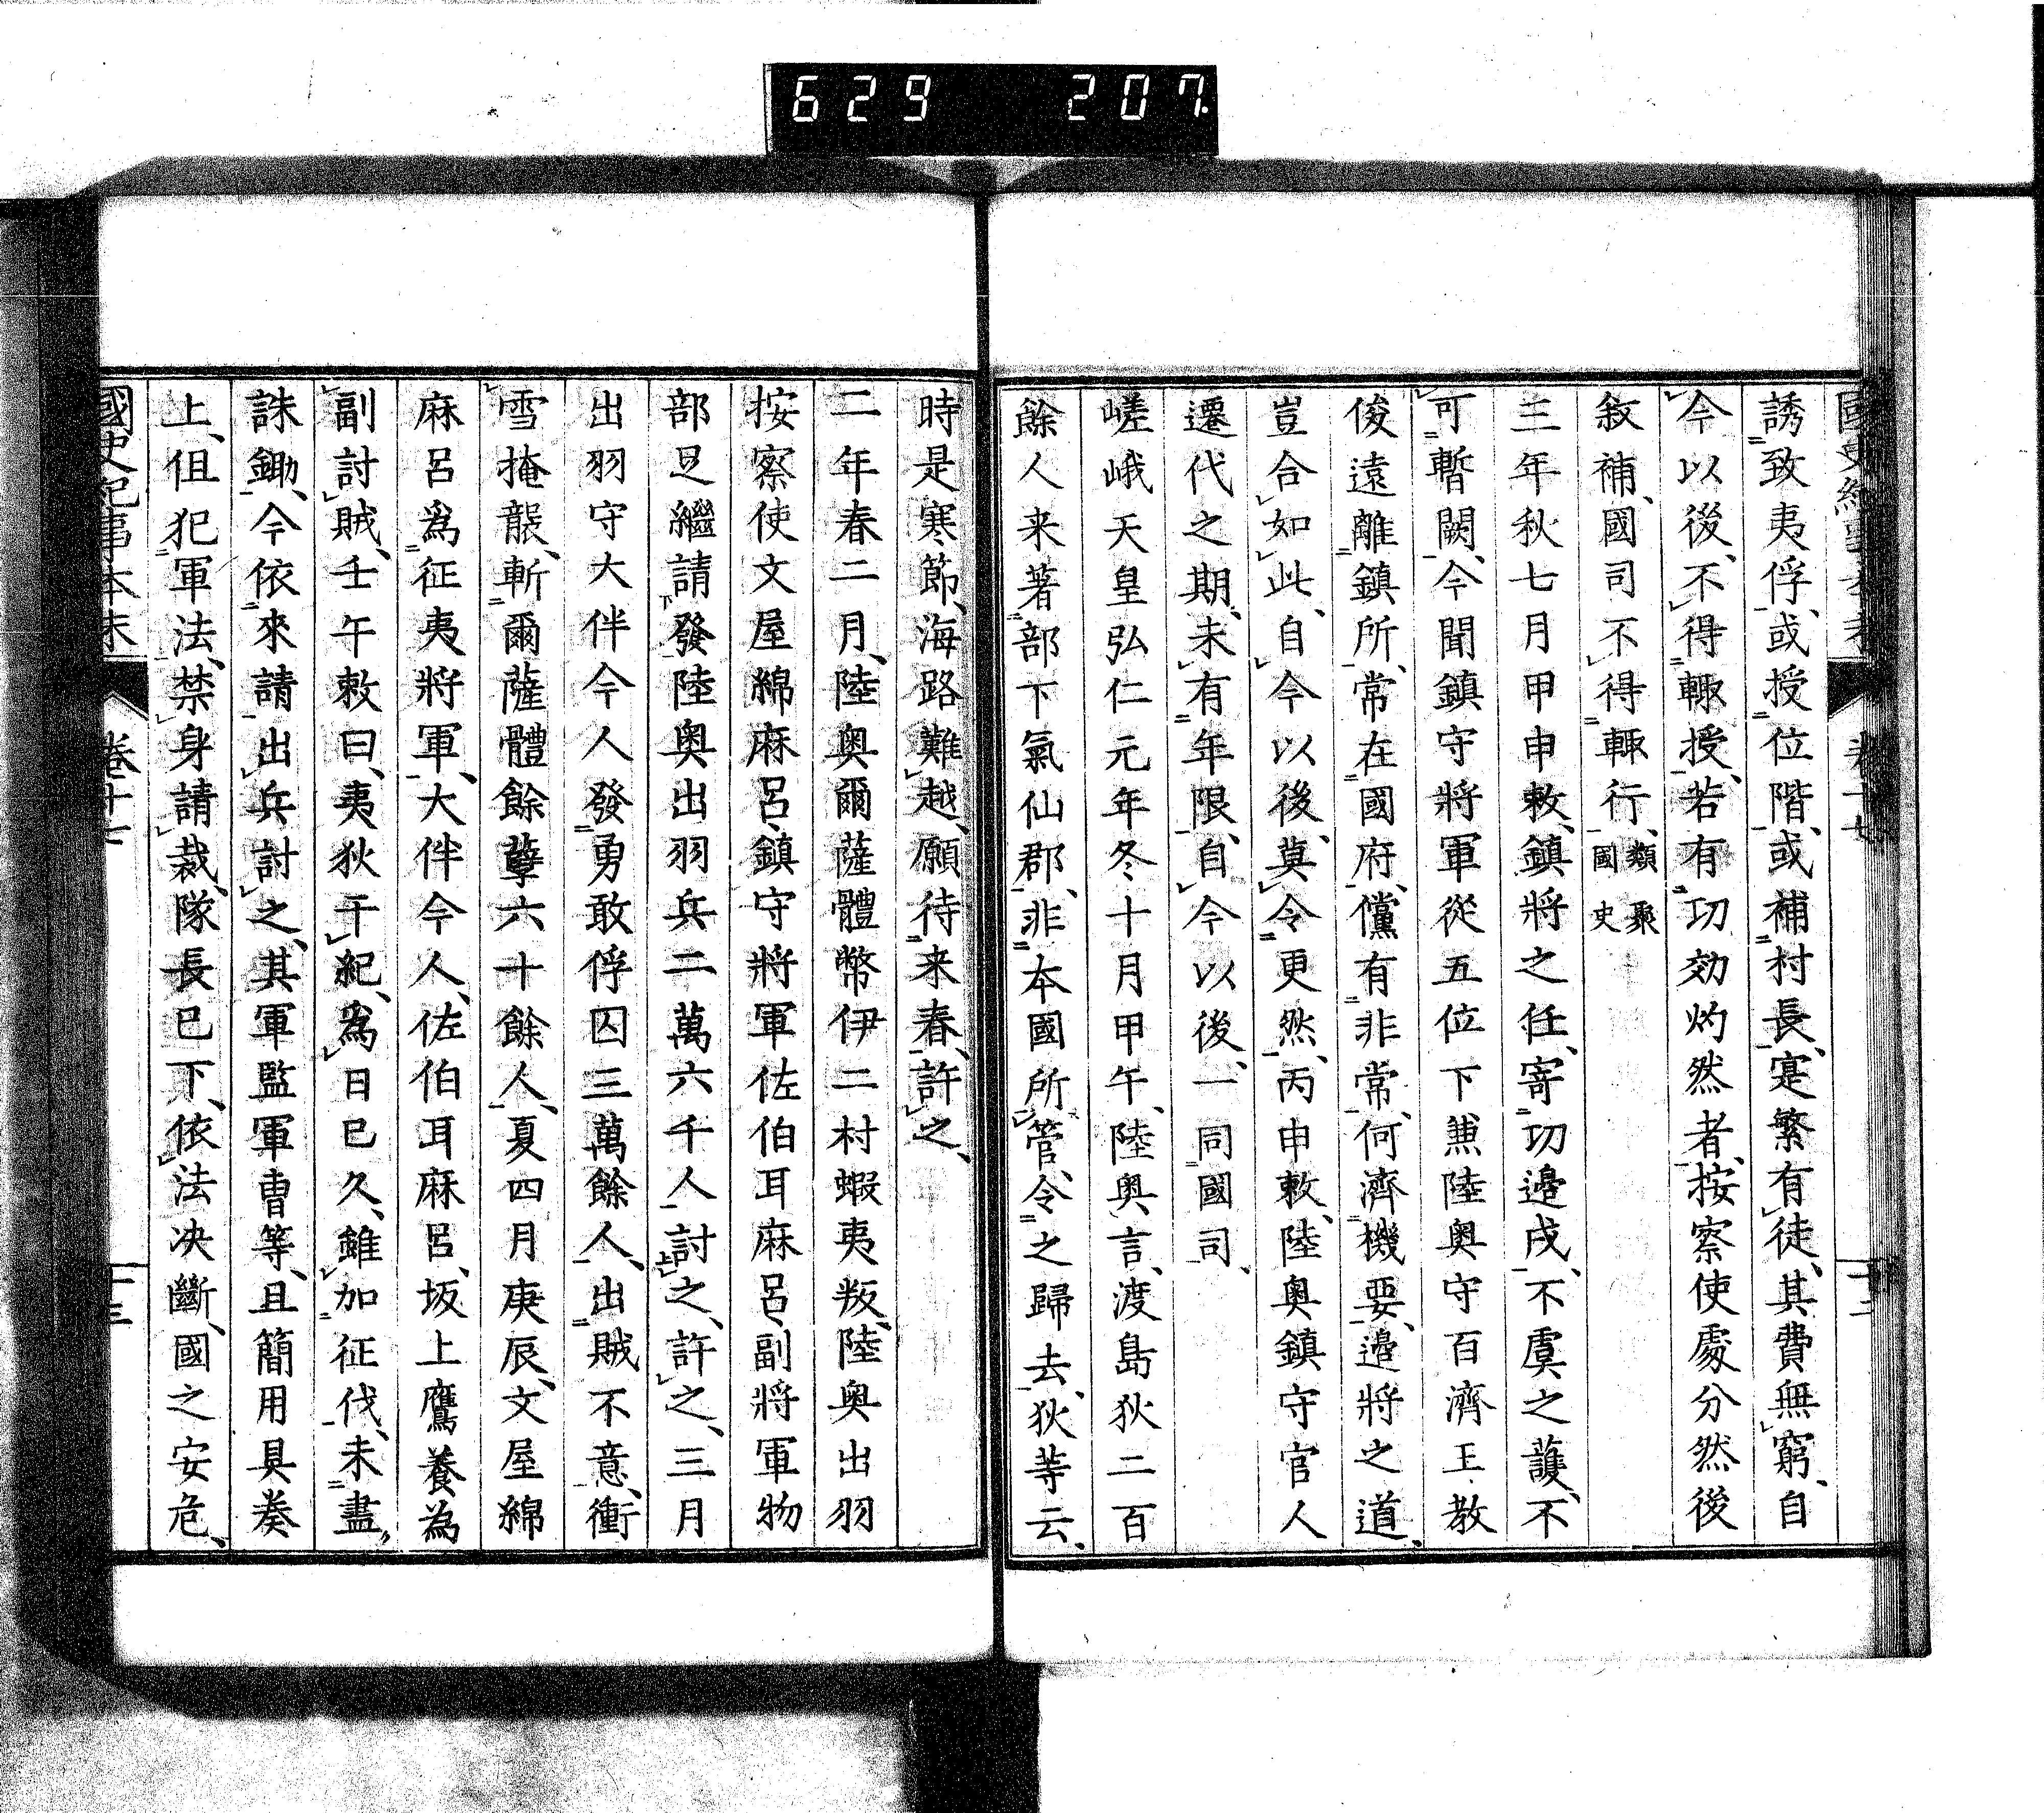 629 207
誘致夷俘、或授位階、或補村長、寔繁有徒、其費無窮、自
今以後、不得輙授、若有功効灼然者、按察使處分然後
敘補、國司不得輙行、類聚國史
三年秋七月甲申敕、鎮將之任、寄功邉戌、不虞之護、不
可暫闕、今聞鎮守將軍從五位下兼陸奥守百濟王教
俊遠離鎮所、常在國府、儻有非常、何濟機要、邉將之道、
豈合如此、自今以後、莫令更然、丙申敕、陸奥鎮守官人
遷代之期、未有年限、自今以後、一同國司、
嵯峨天皇弘仁元年冬十月甲午、陸奥言、渡島狄二百
餘人来著部下氣仙郡、非本國所管、令之歸去、狄等云、
時是寒節、海路難越、願待来春、許之、
二年春二月、陸奥爾薩體幣伊二村蝦夷叛、陸奥出羽
按察使文屋綿麻呂、鎮守將軍佐伯耳麻呂、副將軍物
部足繼請發陸奥出羽兵二萬六千人討之、許之、三月
出羽守大伴今人發勇敢俘囚三萬餘人、出賊不意、衝
雪掩襲、斬爾薩體餘孽六十餘人、夏四月庚辰、文屋綿
麻呂爲征夷將軍、大伴今人、佐伯耳麻呂、坂上鷹養為
副討賊、壬午敕曰、夷狄干紀、爲日已久、雖加征伐、未盡
誅鋤、今依來請出兵討之、其軍監軍曹等、且簡用具奏
上、伹犯軍法、禁身請裁、隊長已下、依法决斷、國之安危、
國史紀事本末 卷十七 十三